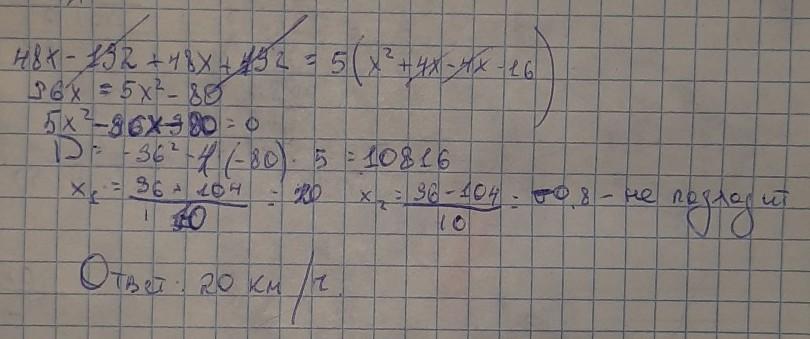 48x - 192 + 48x + 192 = 5(x² + 4x - 4x - 16)
96x = 5x² - 80
5x² - 96x - 80 = 0
D = -96² - 4(-80) · 5 = 10816
x₁ = (96 + 104)/10 = 20 x₂ = (96 - 104)/10 = -0,8 - не подходит
Ответ: 20 км/ч.